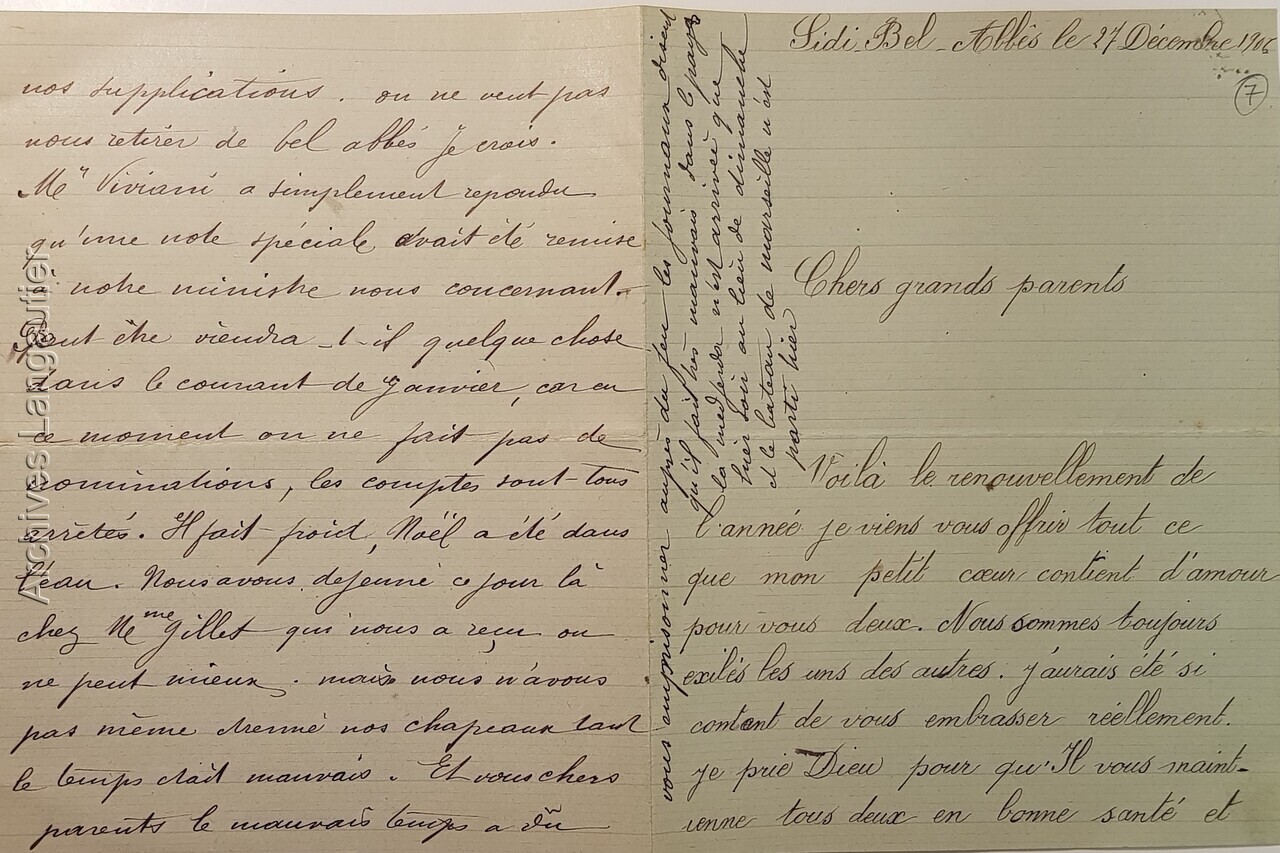 Sidi-Bel-Abbès le 27 Décembre 1906
7
Chers grands parents
Voilà le renouvellement de
l'année je viens vous offrir tout ce
que mon petit cœur contient d'amour
pour vous deux. Nous sommes toujours
exilés les uns des autres. j'aurais été si
content de vous embrasser réellement.
je prie Dieu pour qu'Il vous maint-
ienne tous deux en bonne santé et
nos supplications. on ne veut pas
nous retirer de bel abbés je crois.
Mr Viviani a simplement repondu
qu'une note spéciale avait été remise
à notre ministre nous concernant.
Peut être viendra-t-il quelque chose
dans le courant de Janvier, car en
ce moment on ne fait pas de
nominations, les comptes sont tous
arrêtés. Il fait froid, Noël a été dans
l'eau. Nous avons dejeuné ce jour là
chez Mme Gillet qui nous a reçu on
ne peut mieux. mais nous n'avons
pas même étrenné nos chapeaux tant
le temps était mauvais. Et vous chers
parents le mauvais temps a dû
vous emprisonner auprès du feu les journaux disent
qu'il fait très mauvais dans le pays
la medjerda n'est arrivée que
hier soir au lieu de dimanche
et le bateau de marseille n'est
parti hier
Archives Languetier